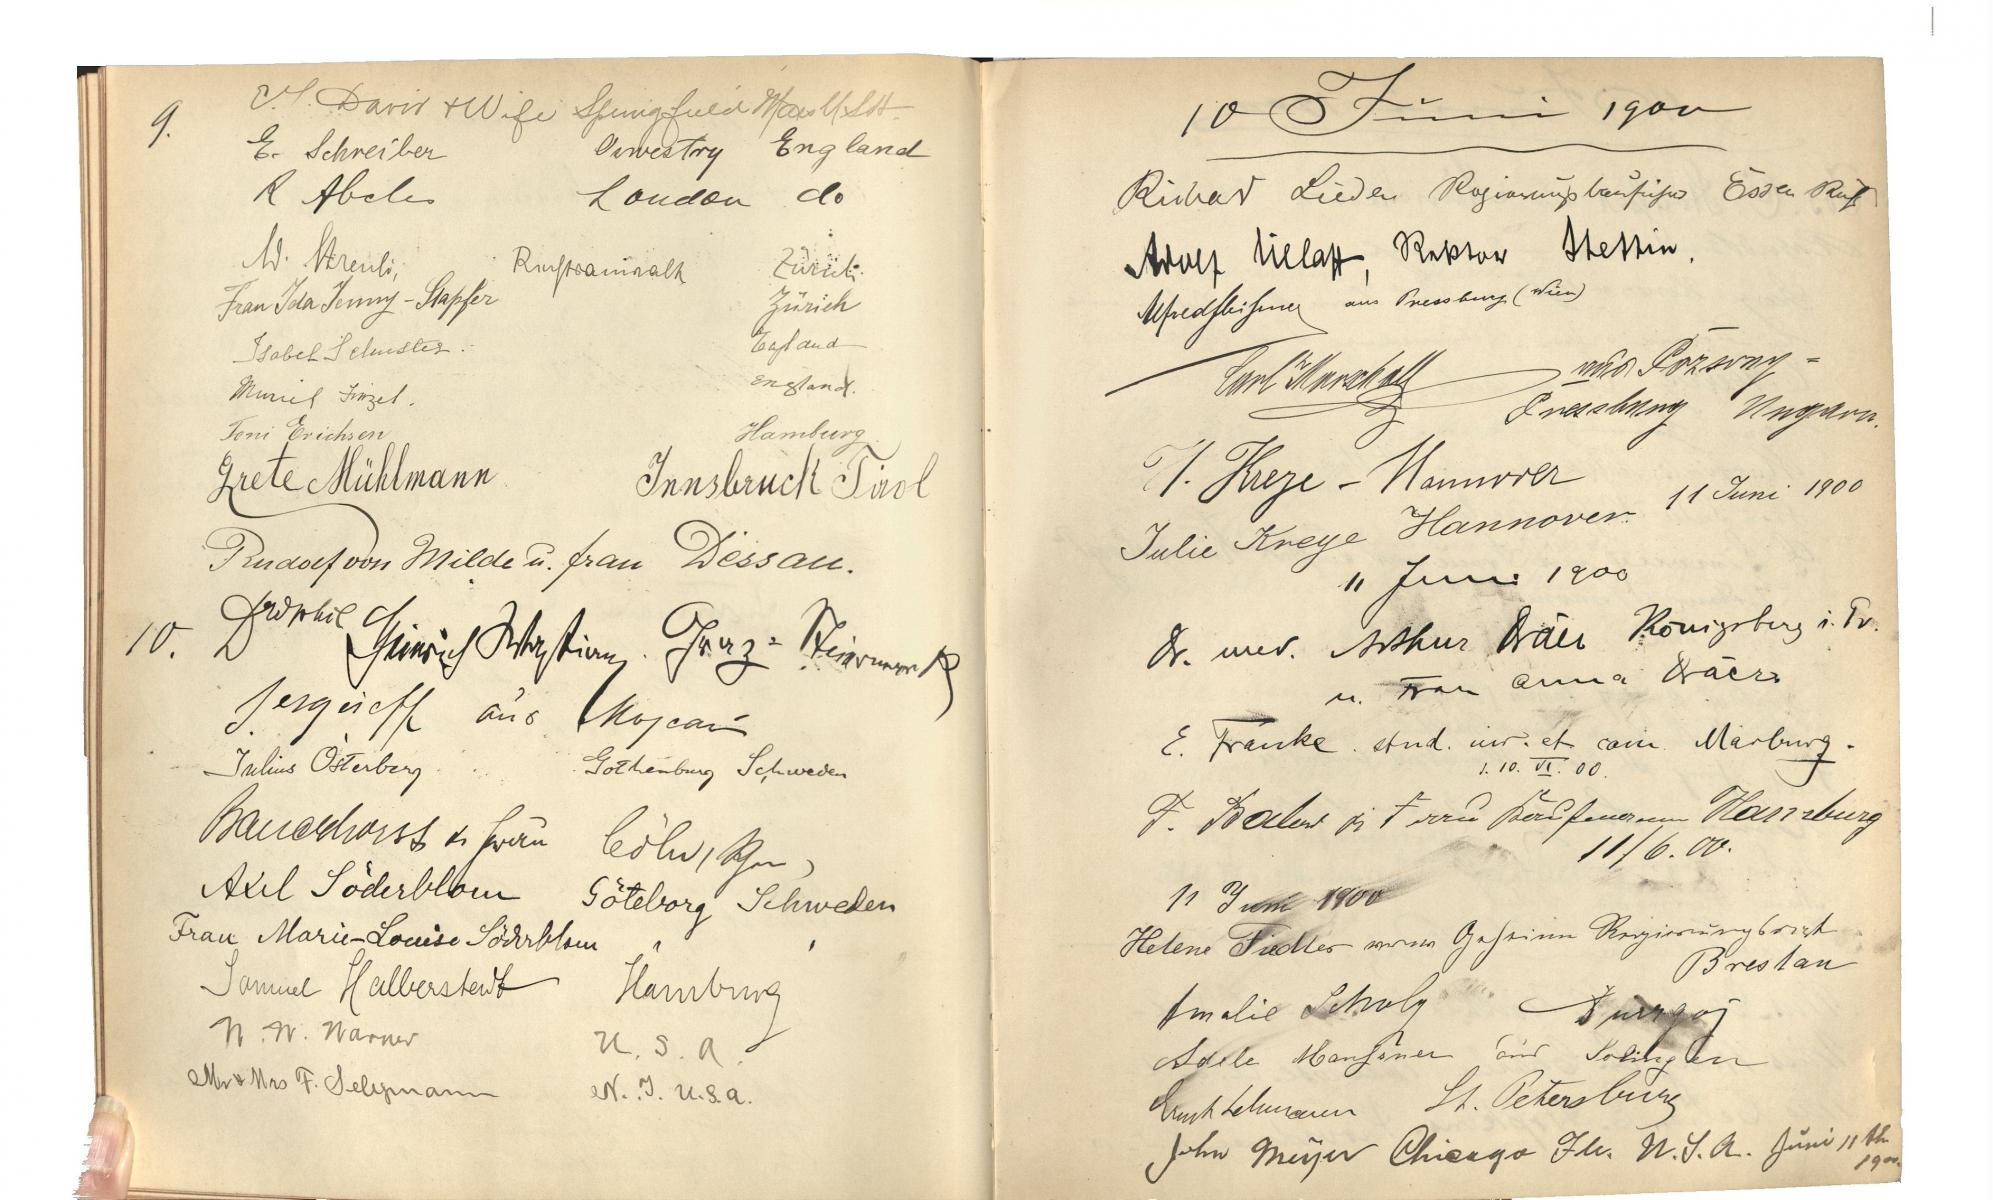 9.
Davis & Wife Springfield Mass
E. Schreiber Oswestry England
R Abeles London do
Ad. Streuli, Rechtsanwalt Zürich
Frau Ida Jenny-Stapfer Zürich
Isabel Schuster England
Muriel England.
Toni Erichsen Hamburg
Grete Mühlmann Innsbruck Tirol
Rudolf von Milde u. frau Dessau.
10. Dr phil Heinrich Graz = Steiermark
aus Moscau
Julius Österberg Gothenburg Schweden
& frau Cöln, Rhn
Axel Söderblom Göteborg Schweden
Frau Marie-Louise Söderblom " "
Samuel Halberstadt Hamburg
N. W. Warner U. S. A.
Mr & Mrs F. Selzmann N. J. U.S.A.
10 Juni 1900
Richard Lieder Essen Ruhr
Adolf Rektor Stettin.
Alfred aus Pressburg (Wien)
Carl Marschall aus Pozsony =
Pressburg Ungarn.
H. Kreye - Hannover
11 Juni 1900
Julie Kreye Hannover.
11 Juni 1900
Dr. med. Arthur Dräer Königsberg i. Pr.
u. Frau Anna Dräer
E. Franke. stud. iur. et cam. Marburg.
10. VI. 00.
F. Frau Hamburg
11/6.00.
11 Juni 1900
Helene Fiedler
Breslau
Amalie Scholz
Adele aus Solingen
Ernst Lehmann St. Petersburg
John Meyer Chicago Ill. U. S. A. Juni 11th
1900.